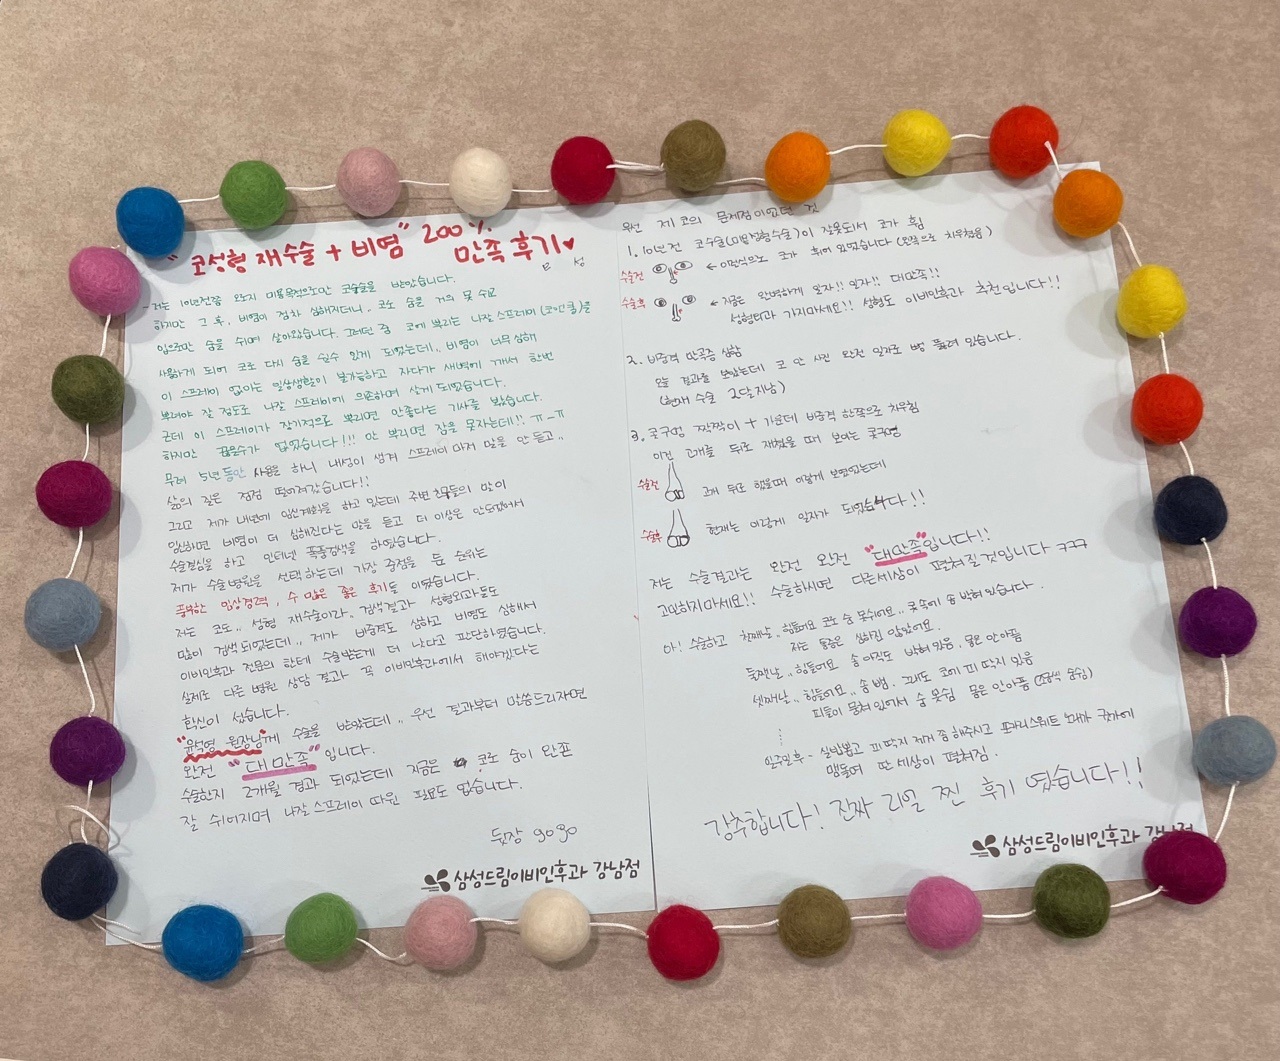 "코성형 재수술 + 비염" 200%
만족 후기♥
- 저는 10년전쯤 완전 미용목적으로만 코수술을 받았습니다.
하지만 그 후, 비염이 점차 심해지더니, 코로 숨은 거의 못 쉬고
입으로만 숨을 쉬며 살아왔습니다. 그러던 중 코에 뿌리는 나잘 스프레이 (코앤쿨)을
사용하게 되어 코로 다시 숨을 쉴수 있게 되었는데.. 비염이 너무 심해
이 스프레이 없이는 일상생활이 불가능하고 자다가 새벽에 깨서 한번
뿌려야 잘 정도로 나잘 스프레이에 의존하며 살게 되었습니다.
근데 이 스프레이가 장기적으로 뿌리면 안좋다는 기사를 봤습니다.
하지만 끊을수가 없었습니다!!! 안 뿌리면 잠을 못자는데!! ㅠ_ㅠ
무려 5년동안 사용을 하니 내성이 생겨 스프레이 마저 말을 안 듣고..
삶의 질은 점점 떨어져갔습니다!!
그리고 제가 내년에 임신계획을 하고 있는데 주변 친구들의 말이
임신하면 비염이 더 심해진다는 말을 듣고 더 이상은 안되겠어서
수술결심을 하고 인터넷 폭풍검색을 하였습니다.
제가 수술병원을 선택하는데 가장 중점을 둔 순위는
풍부한 임상경력, 수 많은 좋은 후기들 이였습니다.
저는 코도.. 성형 재수술이라.. 검색결과 성형외과들도
많이 검색되었는데.. 제가 비중격도 심하고 비염도 심해서
이비인후과 전문의 한테 수술받는게 더 낫다고 판단하였습니다.
실제로 다른 병원 상담 결과 꼭 이비인후과에서 해야겠다는
확신이 섰습니다.
"윤석영 원장님"께 수술을 받았는데.. 우선 결과부터 말씀드리자면
완전 "대만족" 입니다.
수술한지 2개월 경과 되었는데 지금은 코로 숨이 완죤
잘 쉬어지며 나잘 스프레이 따윈 필요도 없습니다.
뒷장 gogo
삼성드림이비인후과 강남점
우선 제 코의 문제점이였던 것
1. 10년전 코수술(미용성형수술)이 잘못되서 코가 휨
수술전 ← 이런식으로 코가 휘어 있었습니다 (왼쪽으로 치우쳤음)
수술후 ← 지금은 완벽하게 일자!! 일자!! 대만족!!
성형외과 가지마세요!! 성형도 이비인후과 추천입니다!!
2. 비중격 만곡증 심함
오늘 결과를 보았는데 코 안 사진 완전 일자로 뻥 뚫려 있습니다.
(현재 수술 2달지남)
3. 콧구멍 짝짝이 + 가운데 비중격 한쪽으로 치우침
이건 고개를 뒤로 재꼈을 때 보이는 콧구멍
수술전 고개 뒤로 했을때 이렇게 보였었는데
수술후 현재는 이렇게 일자가 되었습니다!!
저는 수술결과는 완전 완전 "대만족"입니다!!
고민하지마세요!! 수술하시면 다른세상이 펼쳐질것입니다 ㅋㅋㅋ
아! 수술하고 첫째날.. 힘들어요 코로 숨 못쉬어요.. 콧속에 솜 박혀 있습니다.
저는 통증은 심하진 않았어요.
둘째날.. 힘들어요.. 솜 아직도 박혀 있음. 몸은 안아픔
셋째날.. 힘들어요.. 솜 뺌. 그래도 코에 피 딱지 있음
피들이 뭉쳐 있어서 숨 못쉼 몸은 안아픔
일주일 후 - 실밥뽑고 피 딱지 제거 좀 해주시고
딴 세상이 펼쳐짐.
강추합니다! 진짜 리얼 찐 후기 였습니다!!
삼성드림이비인후과 강남점